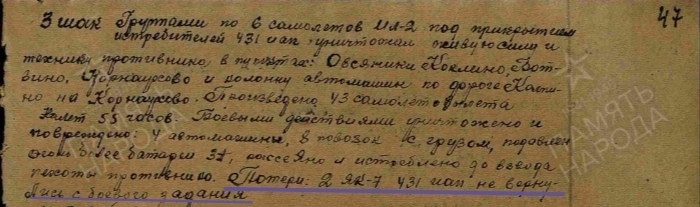 47
3 шак Группами по 6 самолетов ИЛ-2 под прикрытием
истребителей 431 иап уничтожал живую силу и
технику противника в пунктах: Овсяники, Коклино, Вот-
вино, Карнаухово и колонну автомашин по дороге
но на Карнаухово. Произведено 43 самолетовылета
55 часов. Боевыми действиями уничтожено и
повреждено: 4 автомашины, 8 повозок с грузом, подавлен
огонь более батареи ЗА, рассеяно и истреблено до взвода
пехоты противника. Потери: 2 ЯК-7 431 иап не верну-
лись с боевого задания
ПАМЯТЬ
НАРОДА